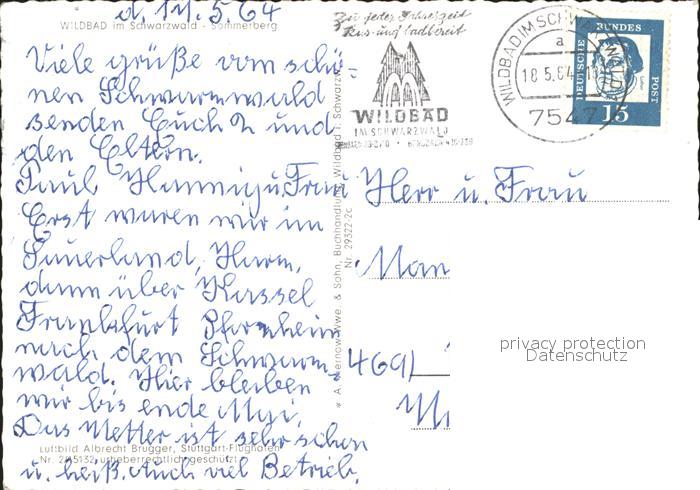 d. 17.5.64
WILDBAD im Schwarzwald - Sommerberg
Viele grüße vom schö-
nen Schwarzwald
senden Euch 2 und
den Eltern.
Paul, Hanni u. Frau
Erst waren wir im
Sauerland, Harz,
dann über Kassel
Frankfurt Pforzheim
nach dem Schwarz-
wald. Hier bleiben
wir bis ende Mai.
Das Wetter ist sehr schön
u. heiß. Auch viel Betrieb.
Luftbild Albrecht Brugger, Stuttgart-Flughafen
urheberrechtlich geschützt
Wwe. & Sohn, Buchhandlung, Wildbad i. Schwarzw.
Nr. 29322-2c
Zu jeder Jahreszeit
WILDBAD
IM SCHWARZWALD
WILDBAD IM SCHWARZWALD
a
18.5.64
7547
DEUTSCHE BUNDESPOST
15
Herr u. Frau
Man
469
privacy protection
Datenschutz